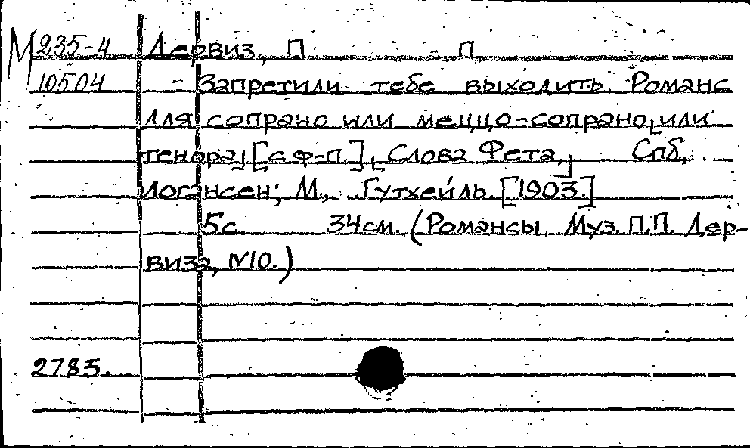 М 235-4 Дервиз, П. П.
10504 - Запретили тебе выходить. Романс
для сопрано или меццо-сопрано, или
тенора, [с ф-п.], Слова Фета, Спб,
Иогансен; М., Гутхейль [1903.]
5с. 34см. (Романсы. Муз. П.П. Дер-
виза, №10.)
2785.